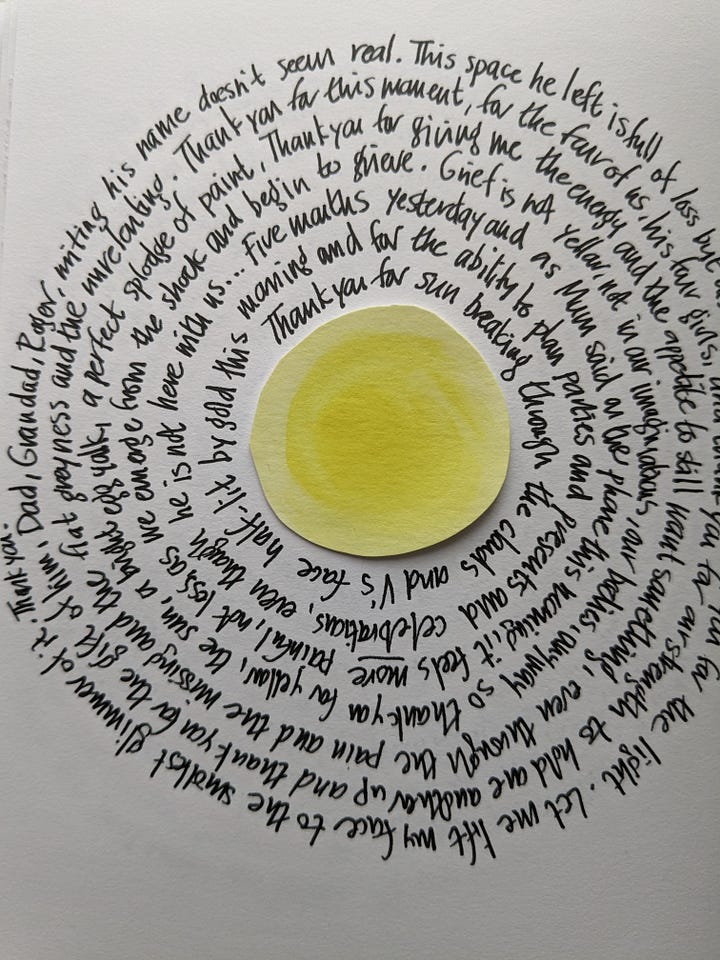 Thank you for sun breaking through the clouds and V's face
half-lit by gold this morning and for the ability to plan parties and presents and celebrations, even though
he is not here with us... Five months yesterday and as Mum said on the phone this morning, it feels more painful, not less, as
we emerge from the shock and begin to grieve. Grief is not yellow, not in our imaginations, our bodies, anyway so thank you for yellow, the sun, a
bright egg yolk, a perfect splodge of paint, Thank you for giving me the energy and the appetite to still want something, even through the pain and the missing and the
flat greyness and the unrelenting. Thank you for this moment, for the four of us, his four girls, and thank you for our strength to hold one another up and thank you for the gift of him,
Dad, Grandad, Roger, writing his name doesn't seem real. This space he left is full of loss but for the light. Let me lift my face to the smallest glimmer of it.
Thank you.